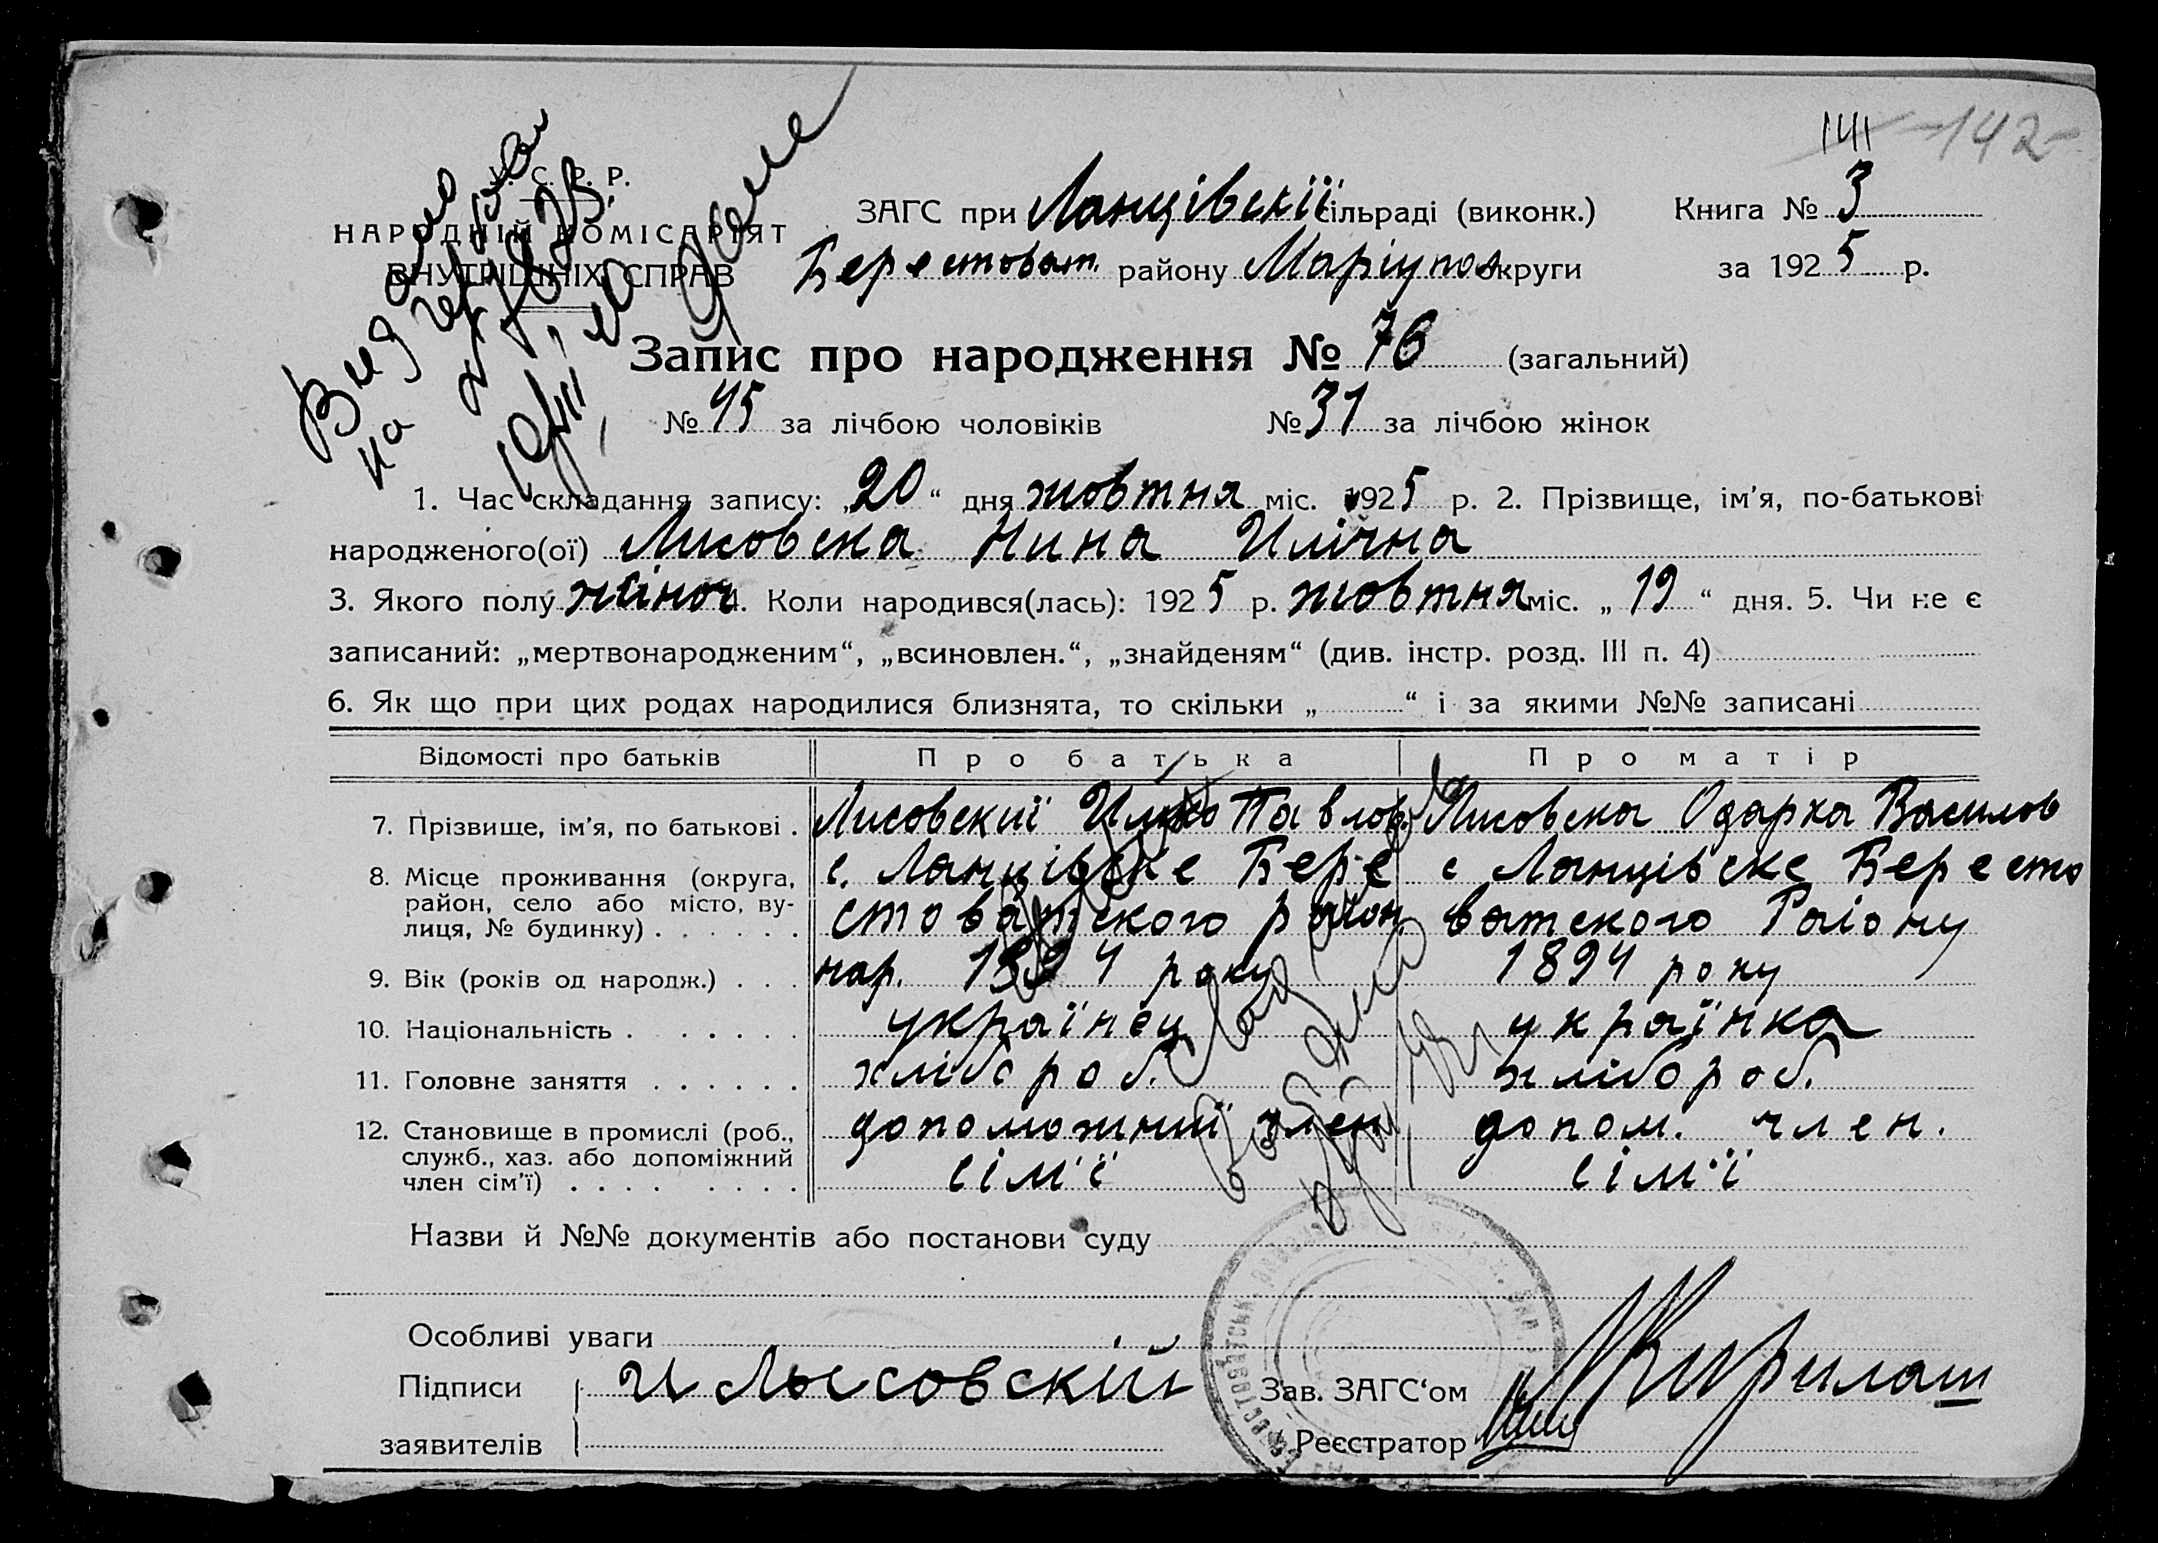 141 -142-
У. С. Р. Р.
НАРОДНІЙ КОМІСАРІЯТ
ВНУТРІШНІХ СПРАВ
Видано
на
ЗАГС при Ланцівскії сільраді (виконк.) Книга № 3
Берестоват. району Маріупол округи за 1925 р.
Запис про народження № 76 (загальний)
№ 45 за лічбою чоловіків № 31 за лічбою жінок
1. Час складання запису: „20“ дня жовтня міс. 1925 р. 2. Прізвище, ім’я, по-батькові
народженого(ої) Лисовска Нина Илічна
3. Якого полу жіноч 4. Коли народився(лась): 1925 р. жовтня міс. „19“ дня. 5. Чи не є
записаний: „мертвонародженим“, „всиновлен.“, „знайденям“ (див. інстр. розд. III п. 4)
6. Як що при цих родах народилися близнята, то скільки „ “ і за якими №№ записані
Відомості про батьків Про батька Про матір
7. Прізвище, ім’я, по батькові . Лисовский Илько Павлов. Лисовска Одарка Василов
8. Місце проживання (округа, с. Ланцівске Бере с Ланцівске Бересто
район, село або місто, ву- стоватского район. ватского Раіону
лиця, № будинку) . . . . . .
9. Вік (років од народж.) . . . нар. 1894 року 1894 року
10. Національність . . . . . . українец українка
11. Головне заняття . . . . . . хлібороб. хлібороб.
12. Становище в промислі (роб., допоможний член допом. член.
служб., хаз. або допоміжний сім'ї сім'ї
член сім’ї) . . . . . . . .
Назви й №№ документів або постанови суду
Особливі уваги
Підписи И Лысовскій Зав. ЗАГС‘ом Кирилаш
заявителів Реєстратор